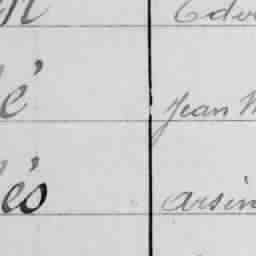 n Edw
é Jean M
és Arsèn